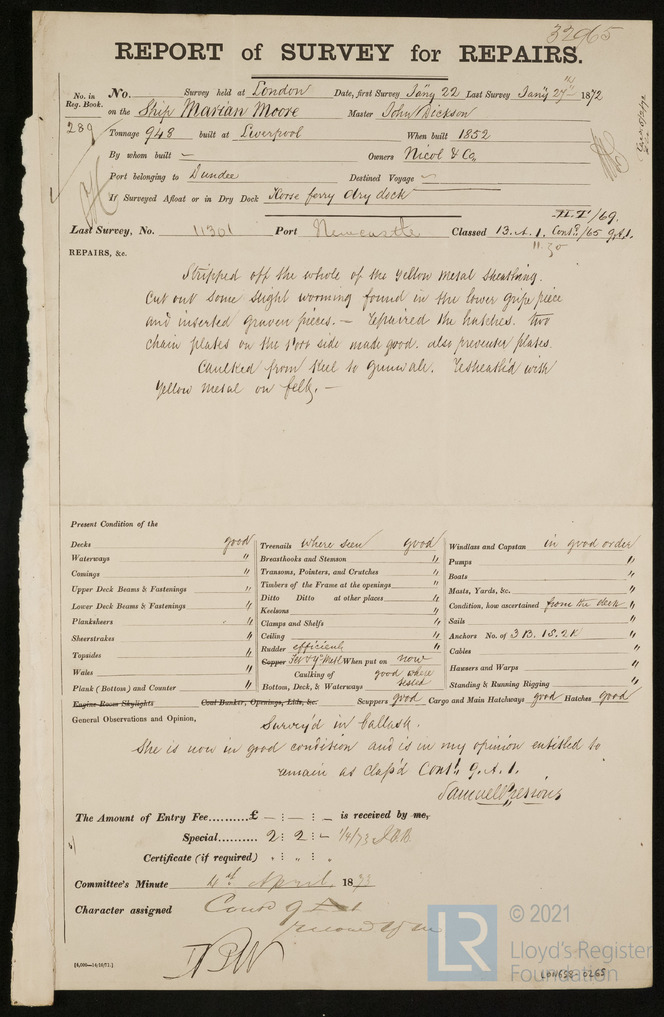 32965
REPORT of SURVEY for REPAIRS.
No. in Reg. Book.
No. Survey held at London Date, first Survey Jan'y 22 Last Survey Jan'y 27th 1872
on the Ship Marian Moore Master John Dickson
289
Tonnage 948 built at Liverpool When built 1852
By whom built — Owners Nicol & Co.
Port belonging to Dundee Destined Voyage
If Surveyed Afloat or in Dry Dock Horse ferry dry dock
/69.
Last Survey, No. 11301 Port Newcastle Classed 13. A. 1. Contd./65 9.A.1.
11.30
REPAIRS, &c.
Stripped off the whole of the Yellow Metal Sheathing.
Cut out some slight worming found in the lower gripe piece
and inserted graven pieces. — Repaired the hatches. two
chain plates on the Port side made good. also preventer plates.
Caulked from keel to gunwale. Resheath'd with
Yellow Metal on felt. —
Present Condition of the
Decks good
Waterways "
Comings "
Upper Deck Beams & Fastenings "
Lower Deck Beams & Fastenings "
Planksheers "
Sheerstrakes "
Topsides "
Wales "
Plank (Bottom) and Counter "
Engine Room Skylights Coal Bunker, Openings, Lids, &c.
Treenails where seen good
Breasthooks and Stemson "
Transoms, Pointers, and Crutches "
Timbers of the Frame at the openings "
Ditto Ditto at other places "
Keelsons "
Clamps and Shelfs "
Ceiling "
Rudder efficient "
Copper Felt & Y. Metl When put on now
Caulking of Bottom, Deck, & Waterways good where tested
Windlass and Capstan in good order
Pumps "
Boats "
Masts, Yards, &c. "
Condition, how ascertained from the deck "
Sails "
Anchors No. of 3 B. 1 S. 2 K "
Cables "
Hawsers and Warps "
Standing & Running Rigging "
Scuppers good Cargo and Main Hatchways good Hatches good
General Observations and Opinion,
Survey'd in Ballast.
She is now in good condition and is in my opinion entitled to
remain as class'd Contd. 9. A. 1.
Samuel Pressons
The Amount of Entry Fee £ — : — : — is received by me,
Special 2 : 2 : —
Certificate (if required)
Committee's Minute 4th April 18
Character assigned
© 2021
LR
Lloyd's Register
Foundation
LON652-0265